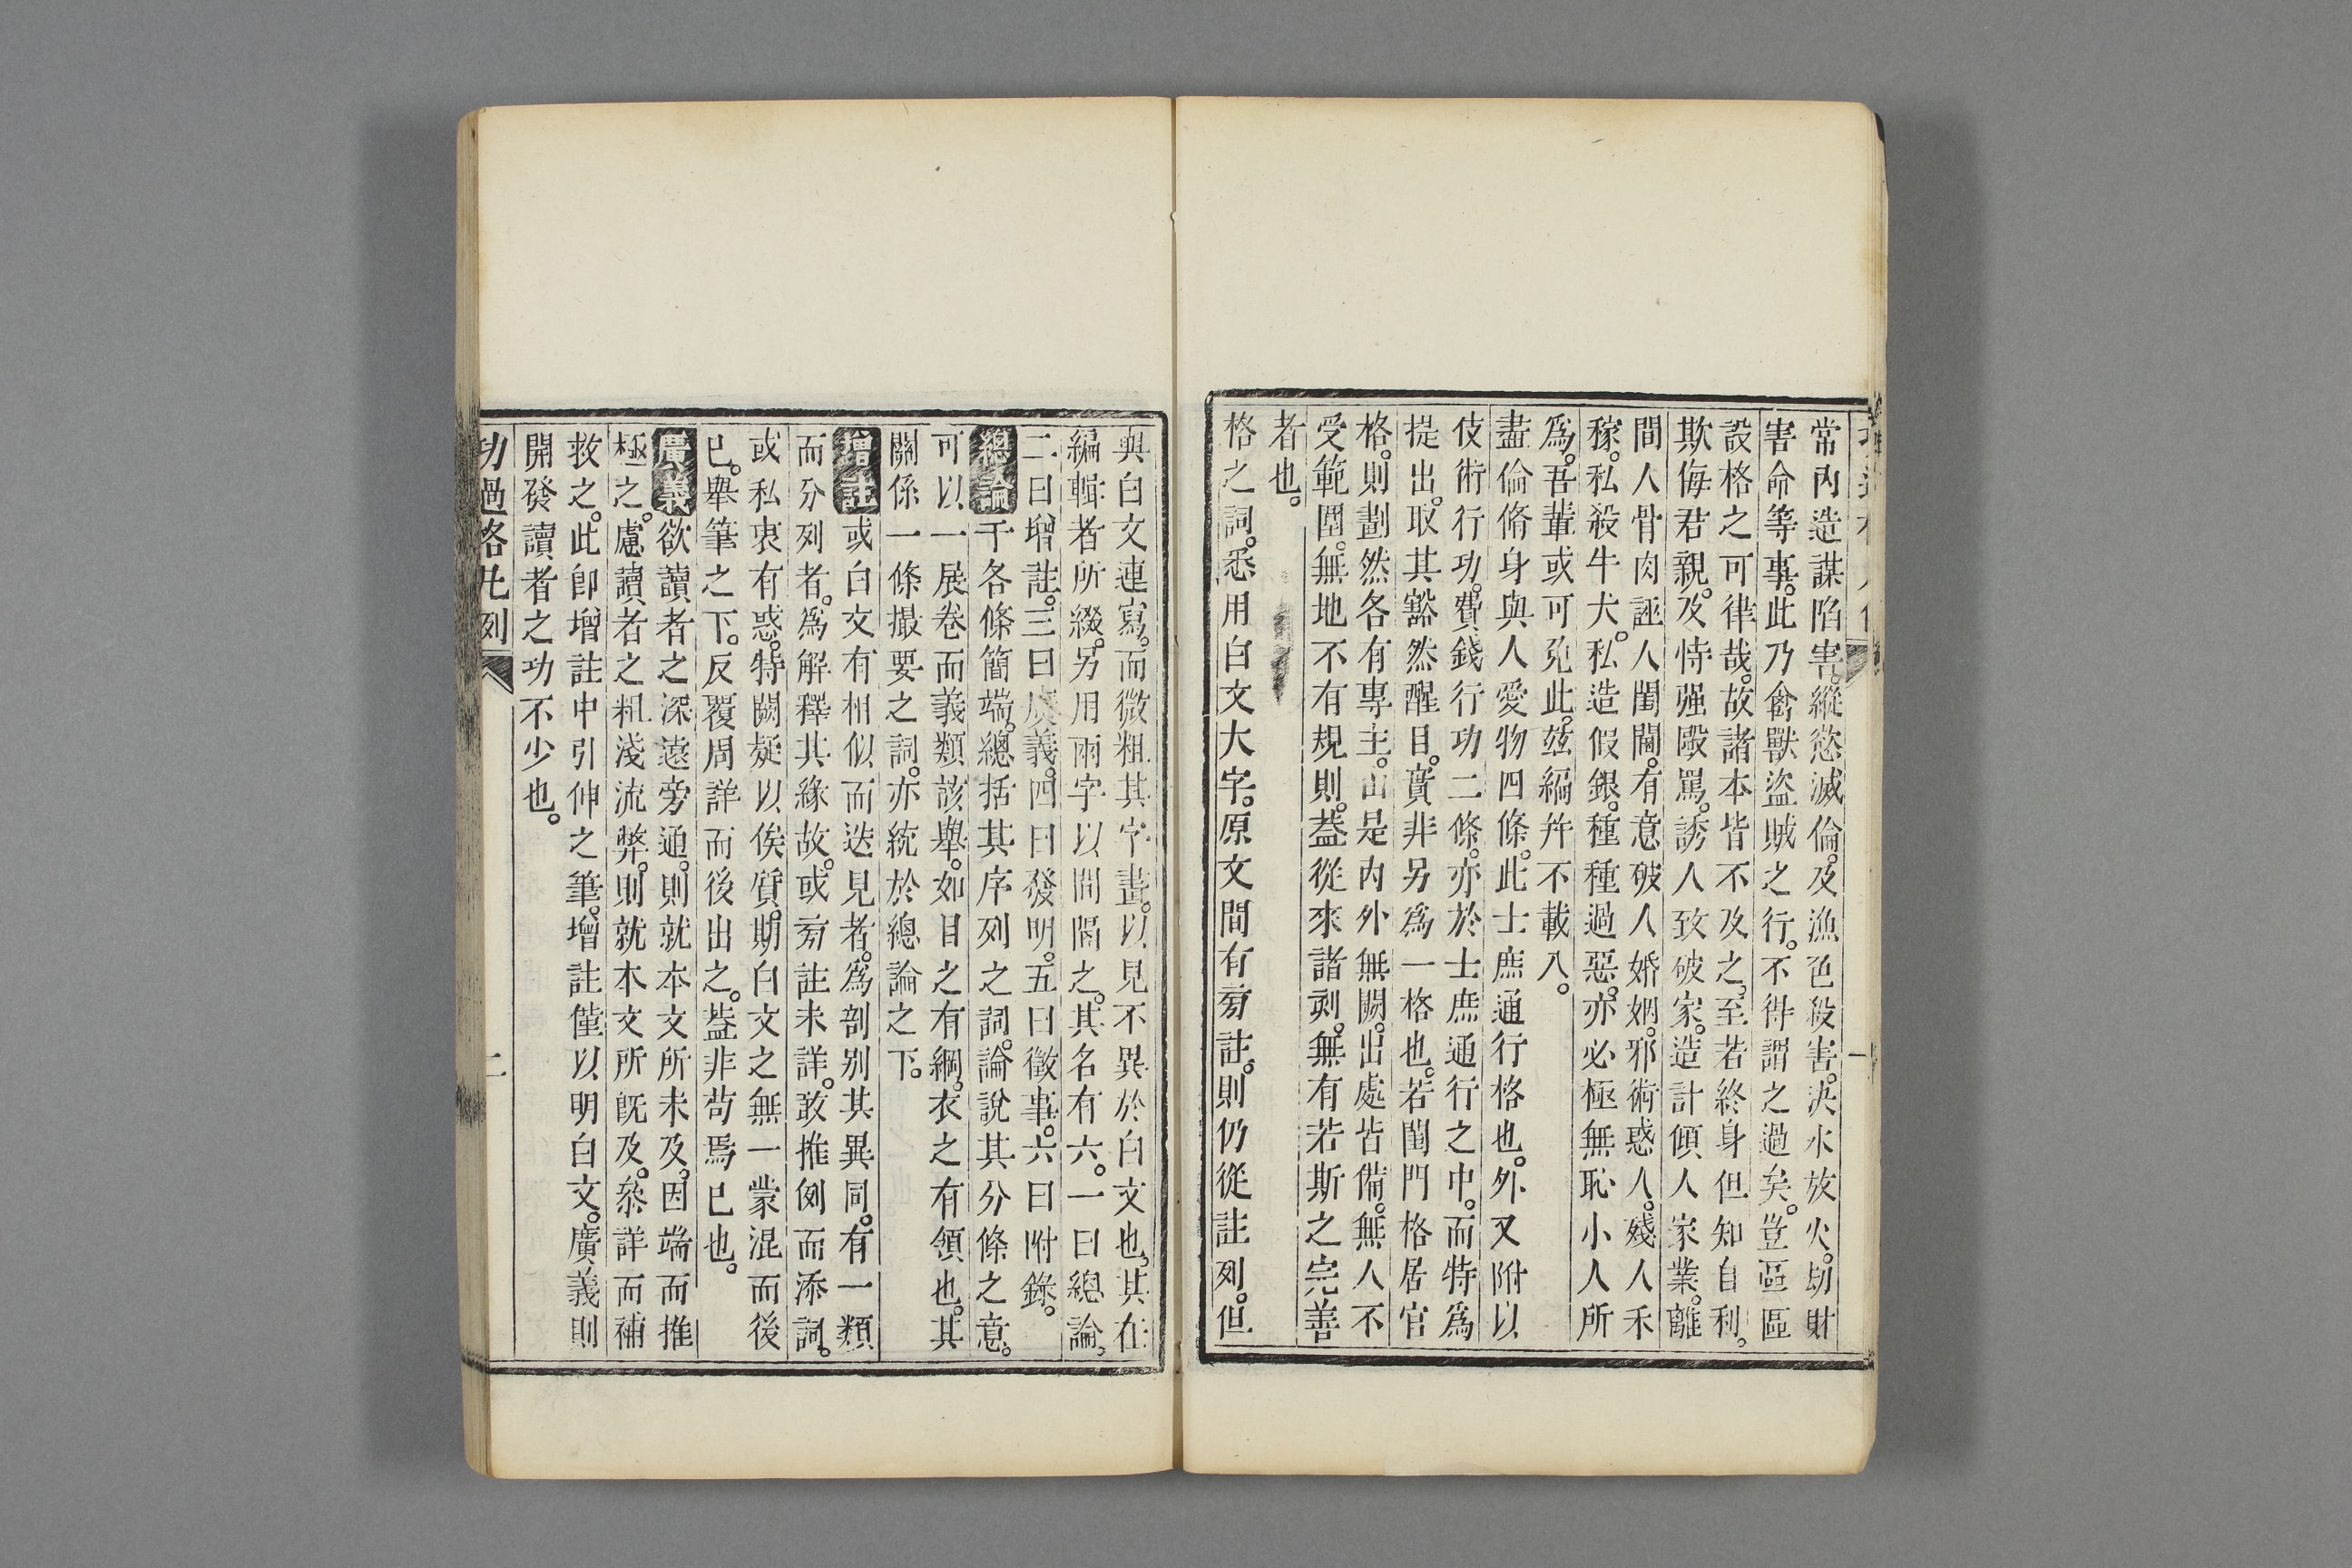 常內造謀陷害。縱慾滅倫。及漁色殺害。決水放火。刼財
害命等事。此乃禽獸盜賊之行。不得謂之過矣。豈區區
設格之可律哉。故諸本皆不及之。至若終身但知自利。
欺侮君親。及恃强毆罵。誘人致破家。造計傾人家業。離
間人骨肉誣人閨閫。有意破人婚姻。邪術惑人。殘人禾
稼。私殺牛犬。私造假銀。種種過惡。亦必極無恥小人所
爲。吾輩或可免此。玆編幷不載入。
盡倫脩身與人愛物四條。此士庶通行格也。外又附以
伎術行功。費錢行功二條。亦於士庶通行之中。而特爲
提出。取其豁然醒目。實非另爲一格也。若閨門格居官
格。則劃然各有專主。由是內外無闕。出處皆備。無人不
受範圍。無地不有規則。葢從來諸刻。無有若斯之完善
者也。
格之詞。悉用白文大字。原文間有旁註。則仍從註列。但
與白文連寫。而微粗其字畫。以見不異於白文也。其在
編輯者所綴。另用兩字以間隔之。其名有六。一曰總論。
二曰增註。三曰廣義。四曰發明。五曰徵事。六曰附錄。
總論于各條簡端。總括其序列之詞。論說其分條之意。
可以一展卷而義類該舉。如目之有綱。衣之有領也。其
關係一條撮要之詞。亦統於總論之下。
增註或白文有相似而迭見者。爲剖别其異同。有一類
而分列者。爲解釋其緣故。或旁註未詳。敢推例而添詞。
或私衷有惑。特闕疑以俟質。期白文之無一蒙混而後
已。舉筆之下。反覆周詳而後出之。葢非茍焉已也。
廣義欲讀者之深遠旁通。則就本文所未及。因端而推
極之。慮讀者之粗淺流弊。則就本文所旣及。叅詳而補
救之。此卽增註中引伸之筆。增註僅以明白文。廣義則
開發讀者之功不少也。
功過格凡例
二